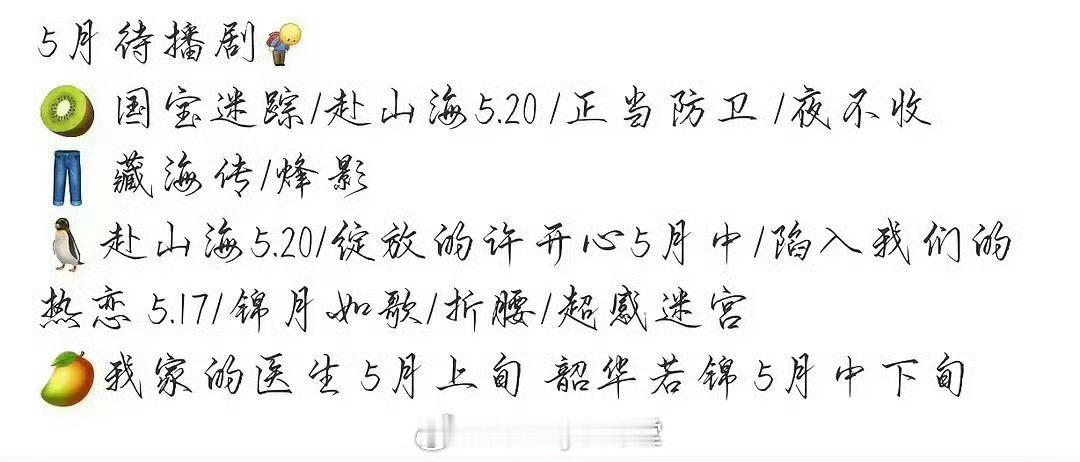 5月待播剧
国宝迷踪/赴山海5.20/正当防卫/夜不收
藏海传/烽影
赴山海5.20/绽放的许开心5月中/陷入我们的
热恋 5.17/锦月如歌/折腰/超感迷宫
我家的医生5月上旬 韶华若锦5月中下旬